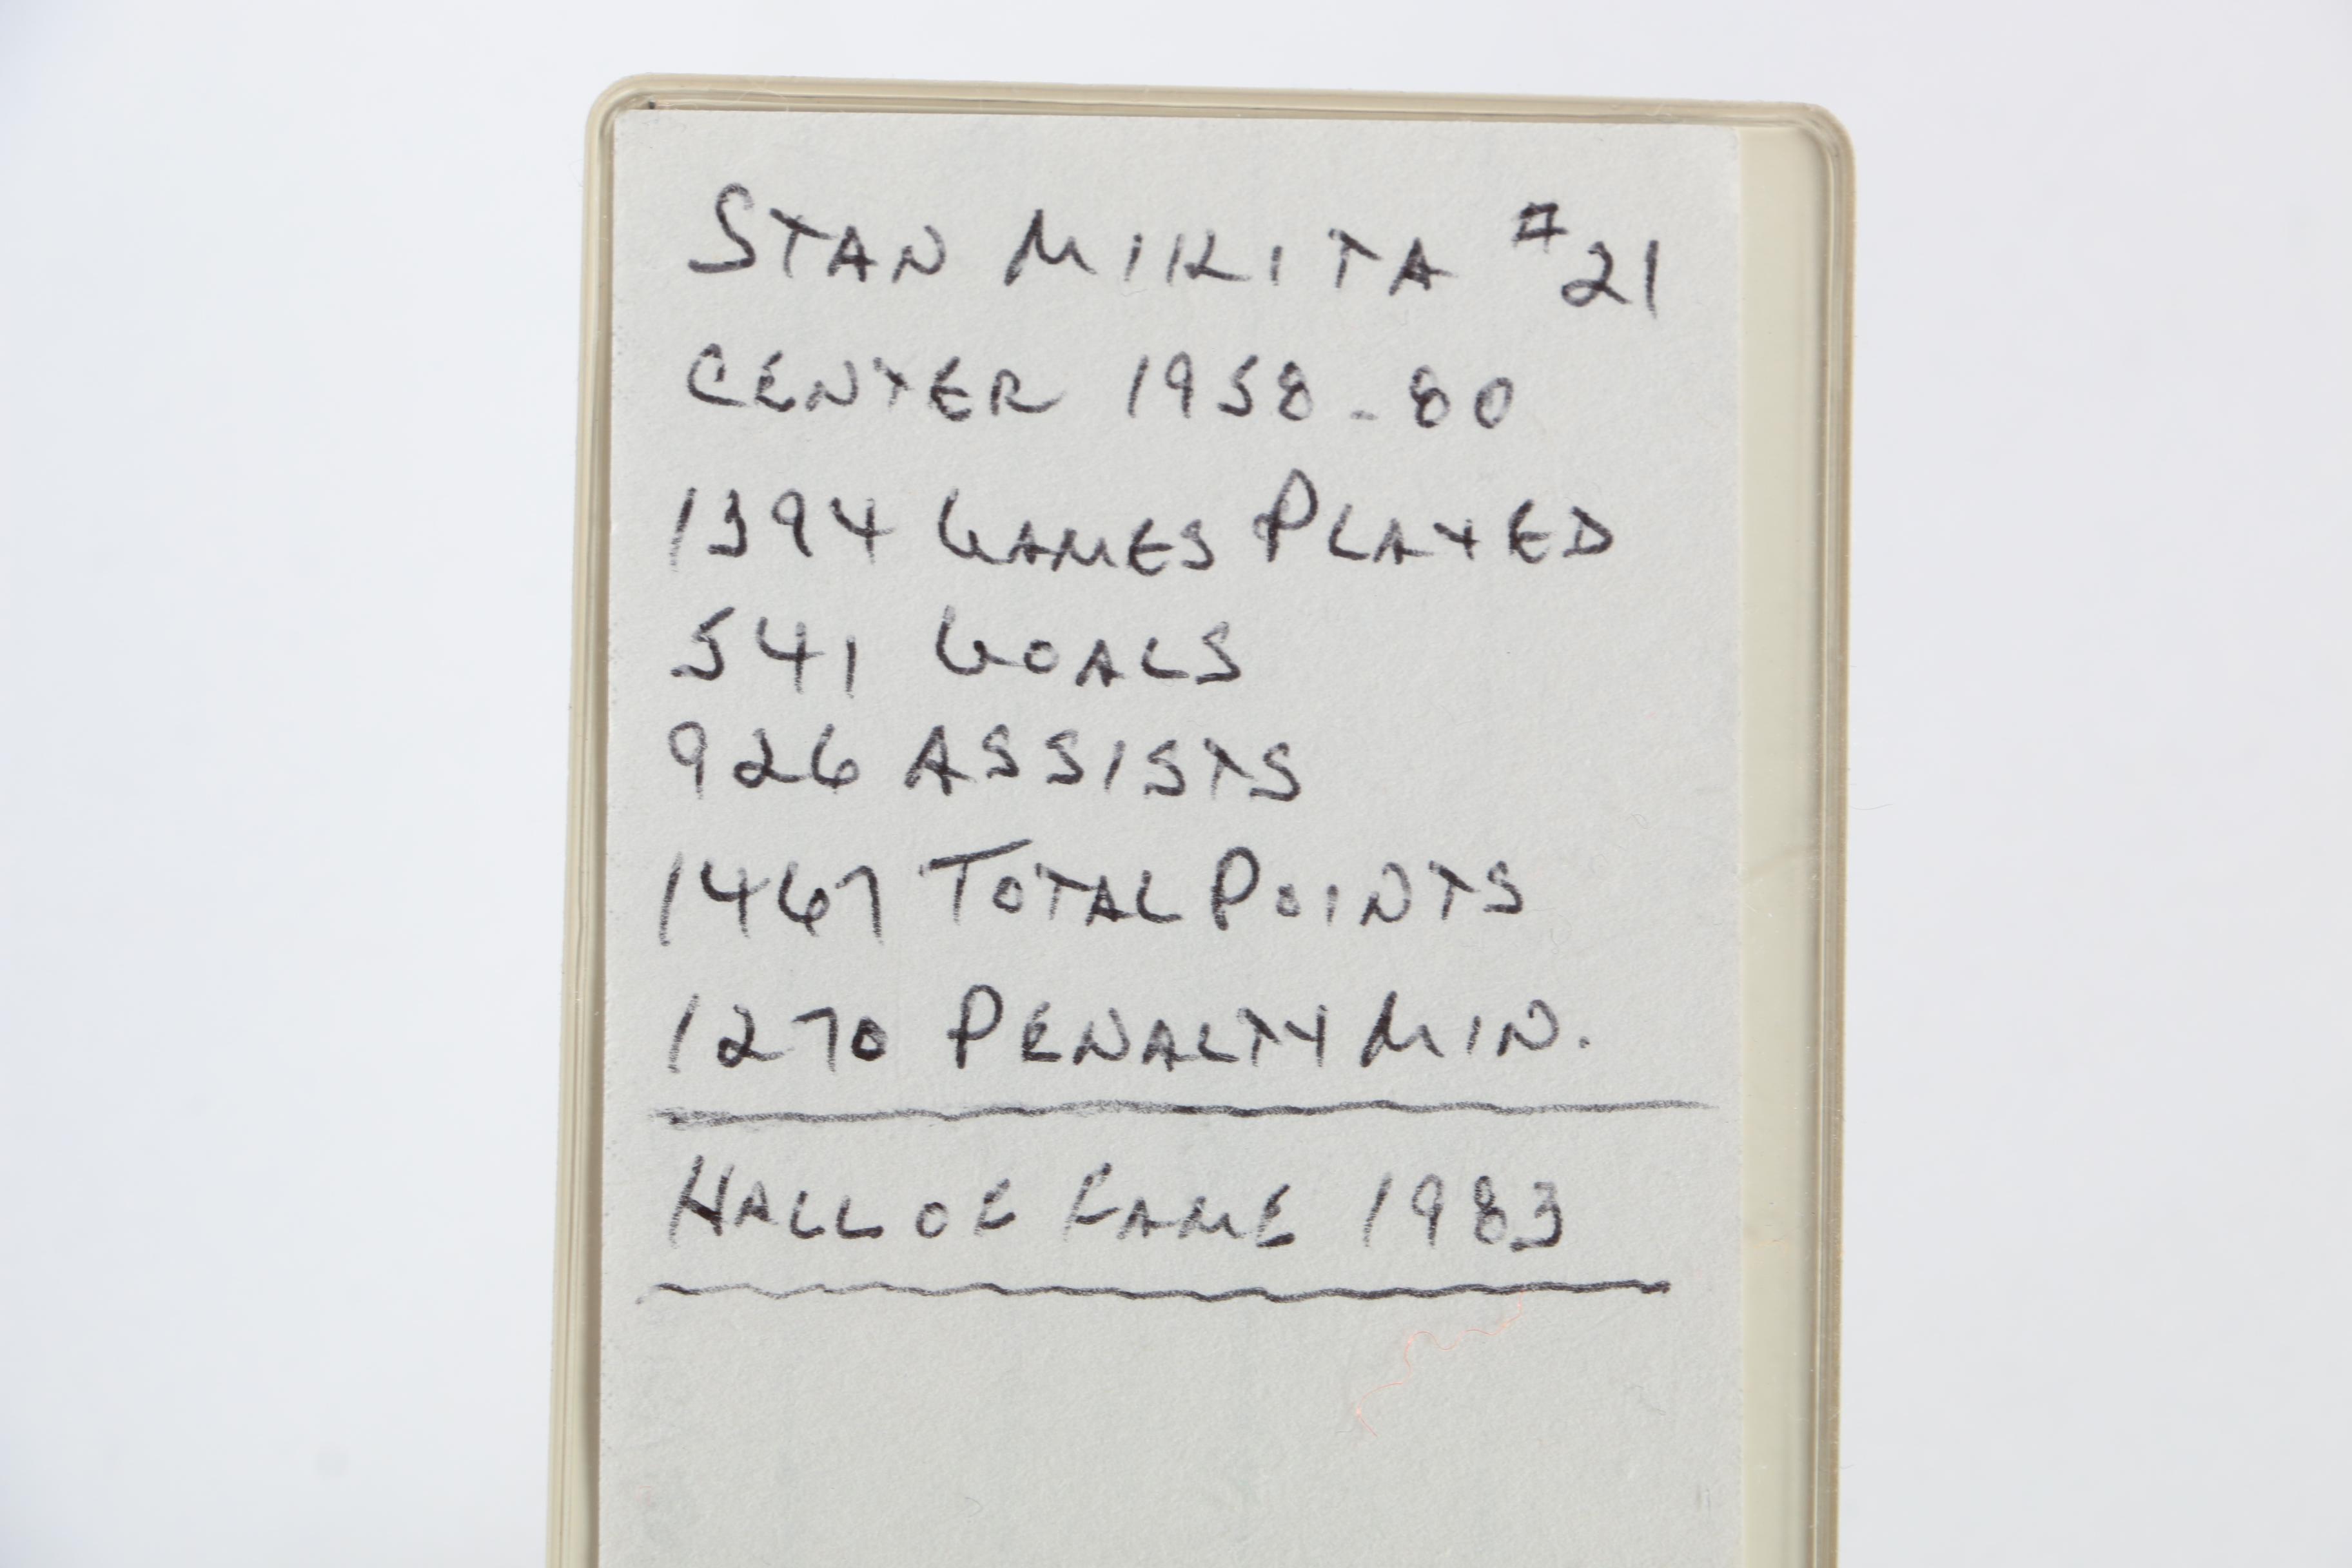 STAN MIKITA #21
CENTER 1958-80
1394 GAMES PLAYED
541 GOALS
926 ASSISTS
1467 TOTAL POINTS
1270 PENALTY MIN.
HALL OF FAME 1983